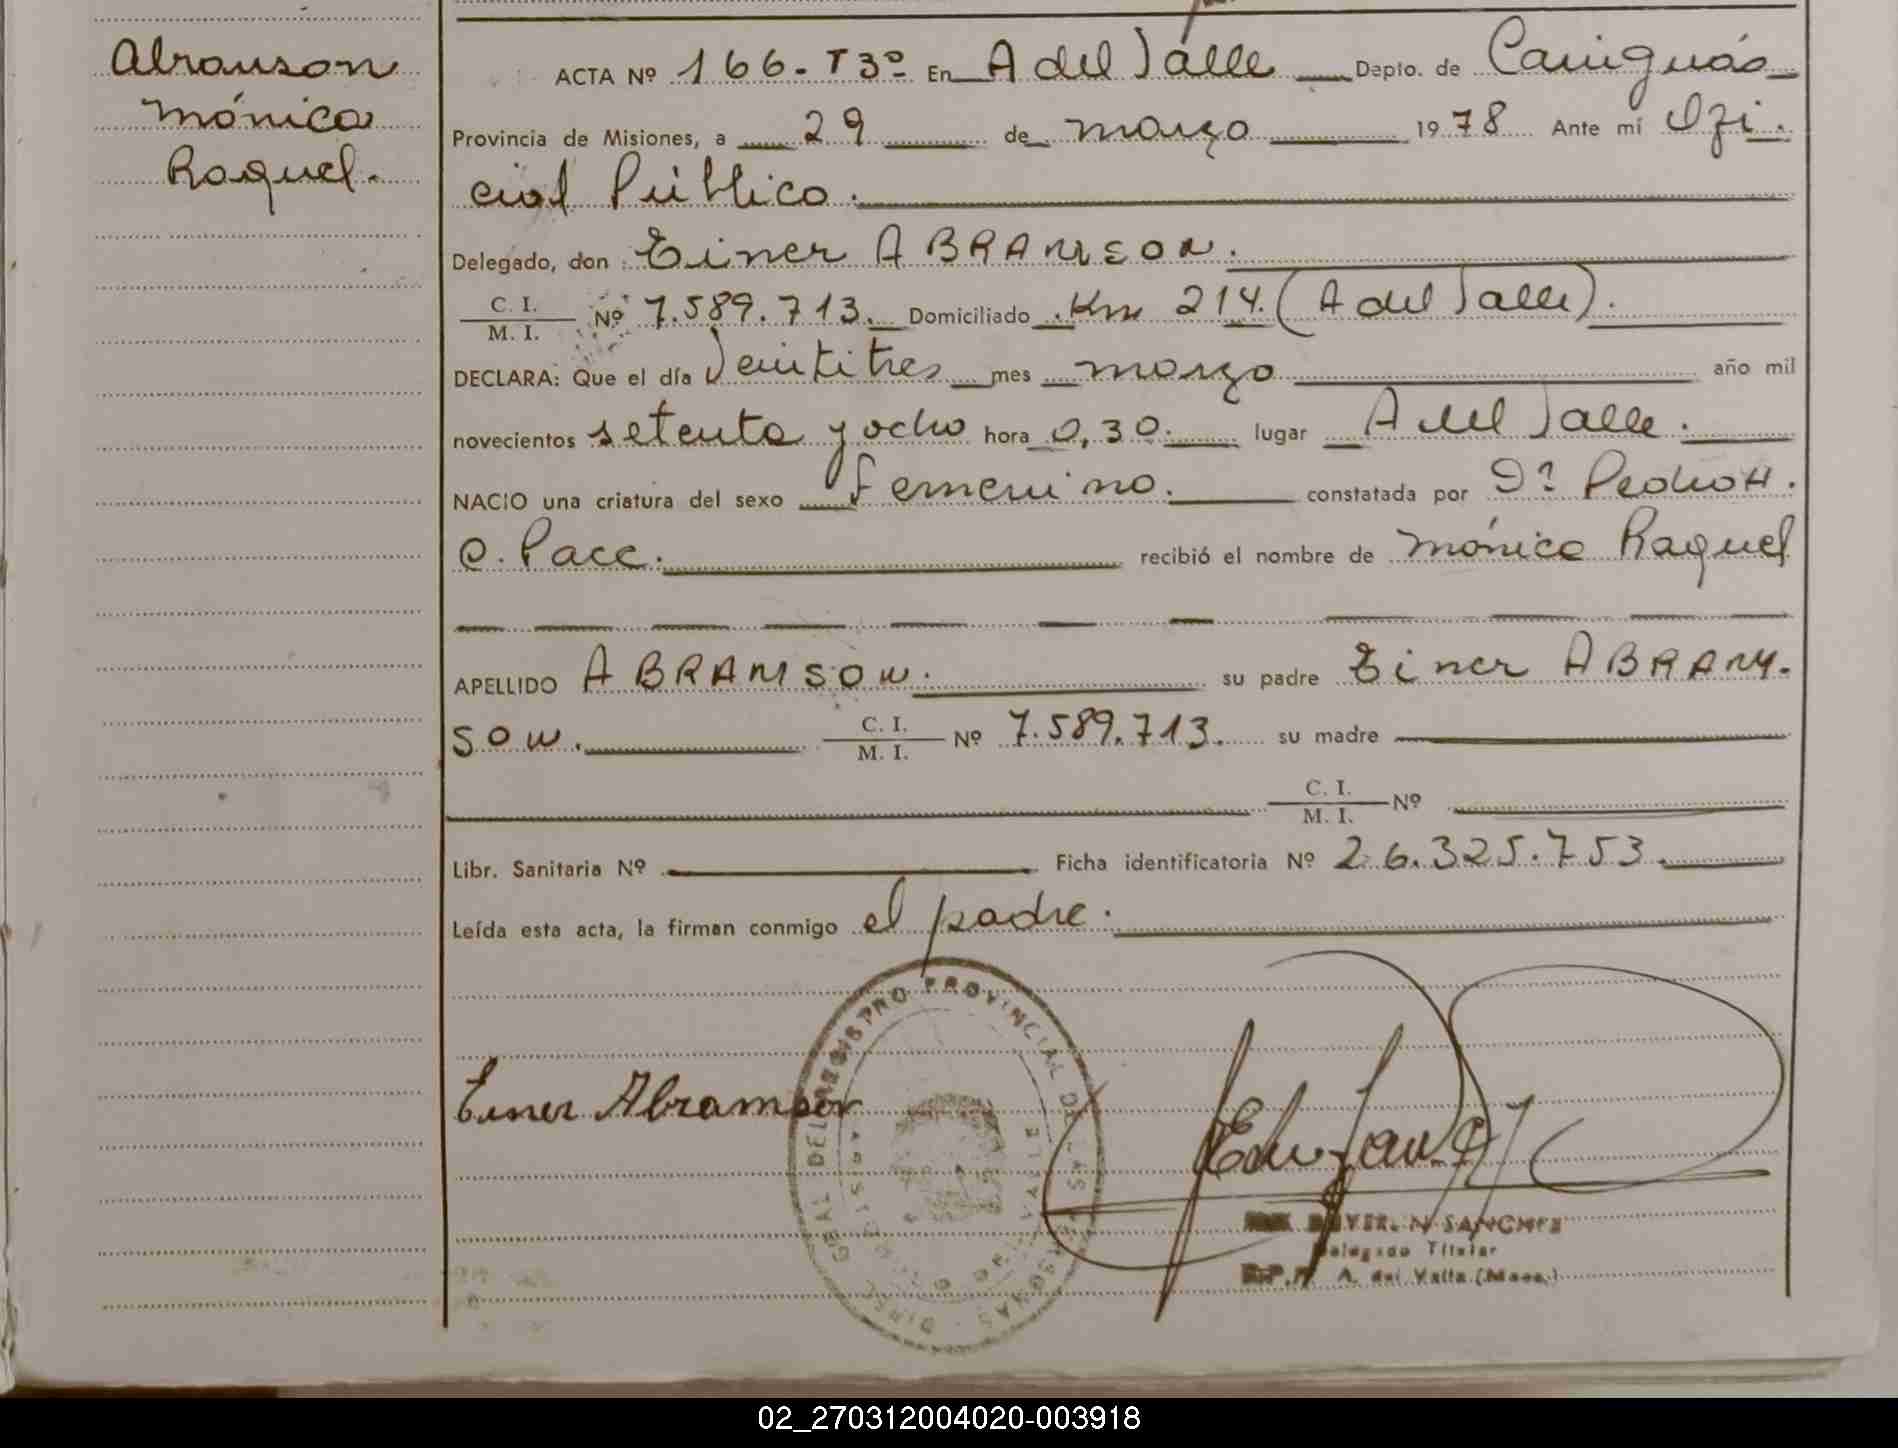 Abramson
Mónica
Raquel.
ACTA Nº 166- T3º En A del Valle Depto. de Cainguás
Provincia de Misiones, a 29 de marzo 1978 Ante mí Ofi-
cial Público.
Delegado, don Einer ABRAMSON.
C. I.
M. I. Nº 7.589.713. Domiciliado Km 214. (A del Valle).
DECLARA: Que el día Veintitres mes marzo año mil
novecientos setenta y ocho hora 0,30. lugar A del Valle.
NACIO una criatura del sexo Femenino. constatada por Dr Pedro H.
C. Pace. recibió el nombre de Mónica Raquel
APELLIDO ABRAMSON. su padre Einer ABRAM-
SON. C. I.
M. I. Nº 7.589.713. su madre
C. I.
M. I. Nº
Libr. Sanitaria Nº Ficha identificatoria Nº 26.325.753.
Leída esta acta, la firman conmigo el padre.
Einer Abramson
DIREC. GRAL DEL REGISTRO PROVINCIAL DE LAS PERSONAS
N. SANCHEZ
Delegado Titular
A. del Valle (Mnes.)
02_270312004020-003918